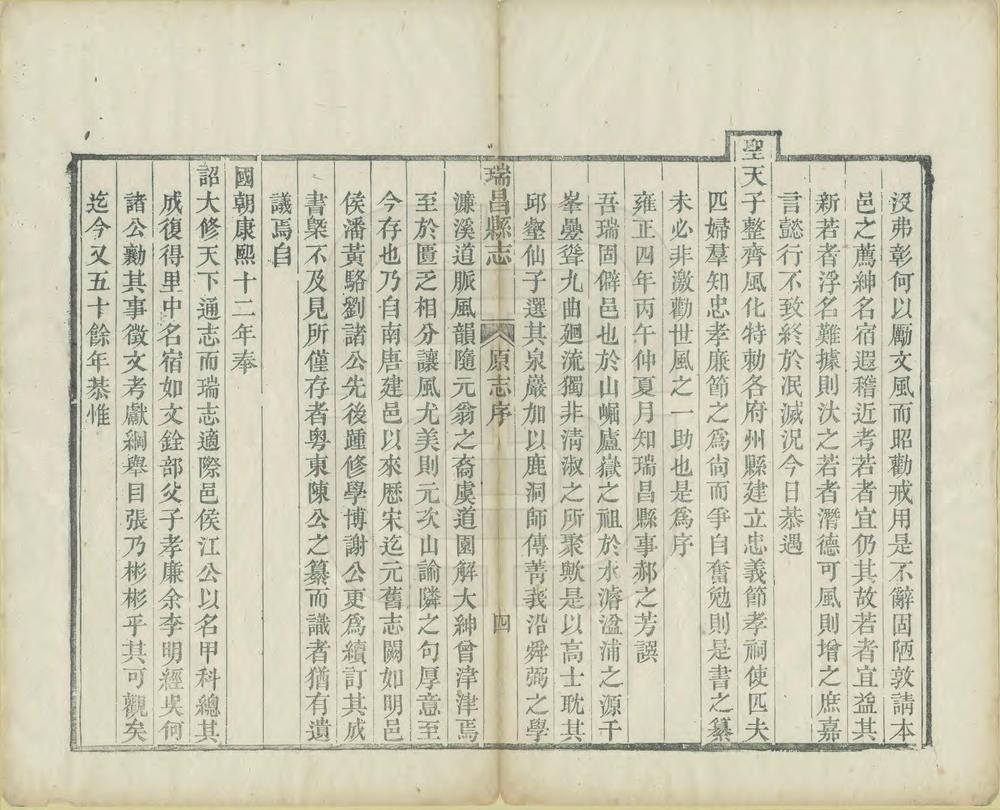 沒弗彰何以勵文風而昭勸戒用是不辭固陋敦請本
邑之薦紳名宿遐稽近考若者宜仍其故若者宜益其
新若者浮名難據則汰之若者潛德可風則增之庶嘉
言懿行不致終於泯滅況今日恭遇
聖天子整齊風化特勅各府州縣建立忠義節孝祠使匹夫
匹婦羣知忠孝廉節之爲尙而爭自奮勉則是書之纂
未必非激勸世風之一助也是爲序
雍正四年丙午仲夏月知瑞昌縣事郝之芳譔
吾瑞固僻邑也於山崛廬嶽之祖於水濬湓浦之源千
峯疊聳九曲廻流獨非淸淑之所聚歟是以高士耽其
邱壑仙子選其泉巖加以鹿洞師傳菁莪沿舜弼之學
瑞昌縣志
原志序
四
濂溪道脈風韻隨元翁之裔虞道園解大紳曾津津焉
至於匱乏相分讓風尤美則元次山諭隣之句厚意至
今存也乃自南唐建邑以來歷宋迄元舊志闕如明邑
侯潘黃駱劉諸公先後踵修學博謝公更爲續訂其成
書槩不及見所僅存者粤東陳公之纂而識者猶有遺
議焉自
國朝康熙十二年奉
詔大修天下通志而瑞志適際邑侯江公以名甲科總其
成復得里中名宿如文銓部父子孝廉余李明經吳何
諸公勷其事徵文考獻綱舉目張乃彬彬乎其可觀矣
迄今又五十餘年恭惟